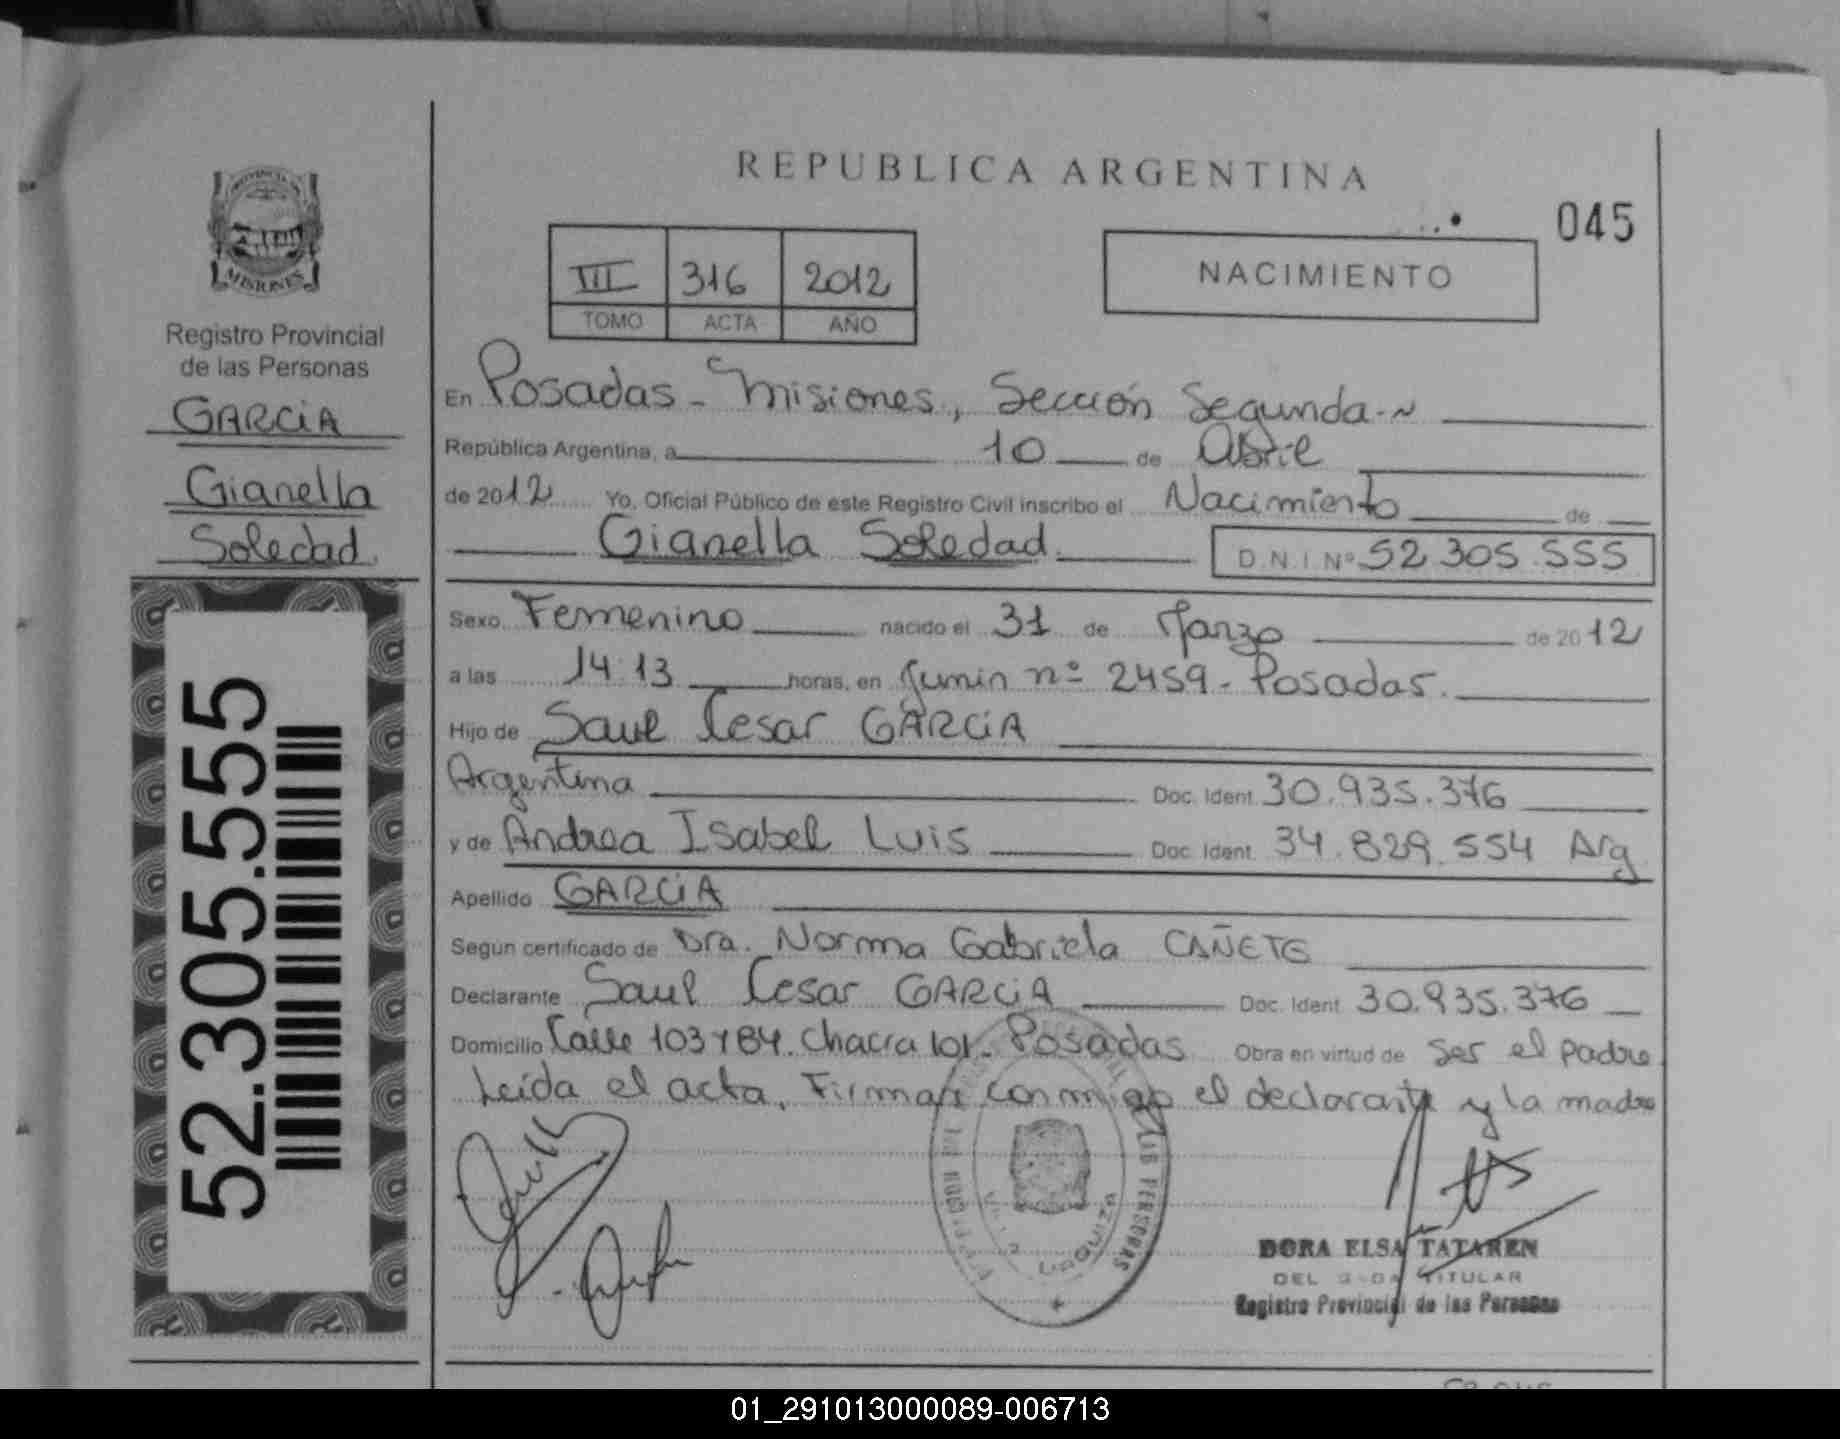 REPUBLICA ARGENTINA
045
NACIMIENTO
III 316 2012
TOMO ACTA AÑO
PROVINCIA DE
MISIONES
Registro Provincial
de las Personas
GARCIA
Gianella
Soledad
52.305.555
En Posadas - Misiones, Sección Segunda.-
República Argentina, a 10 de Abril
de 2012 Yo, Oficial Público de este Registro Civil inscribo el Nacimiento de
Gianella Soledad D.N.I. Nº 52.305.555
Sexo Femenino nacido el 31 de Marzo de 2012
a las 14:13 horas, en Junin nº 2459 - Posadas.
Hijo de Saul Cesar GARCIA
Argentina Doc. Ident. 30.935.376
y de Andrea Isabel Luis Doc. Ident. 34.829.554 Arg
Apellido GARCIA
Según certificado de Dra. Norma Gabriela CAÑETE
Declarante Saul Cesar GARCIA Doc. Ident. 30.935.376
Domicilio Calle 103 y 84. Chacra 101 - Posadas Obra en virtud de Ser el padre
Leída el acta, Firman conmigo el declarante y la madre
PERSONAS
URQUIZA
DORA ELSA TATAREN
DEL TITULAR
Registro Provincial de las Personas
01_291013000089-006713